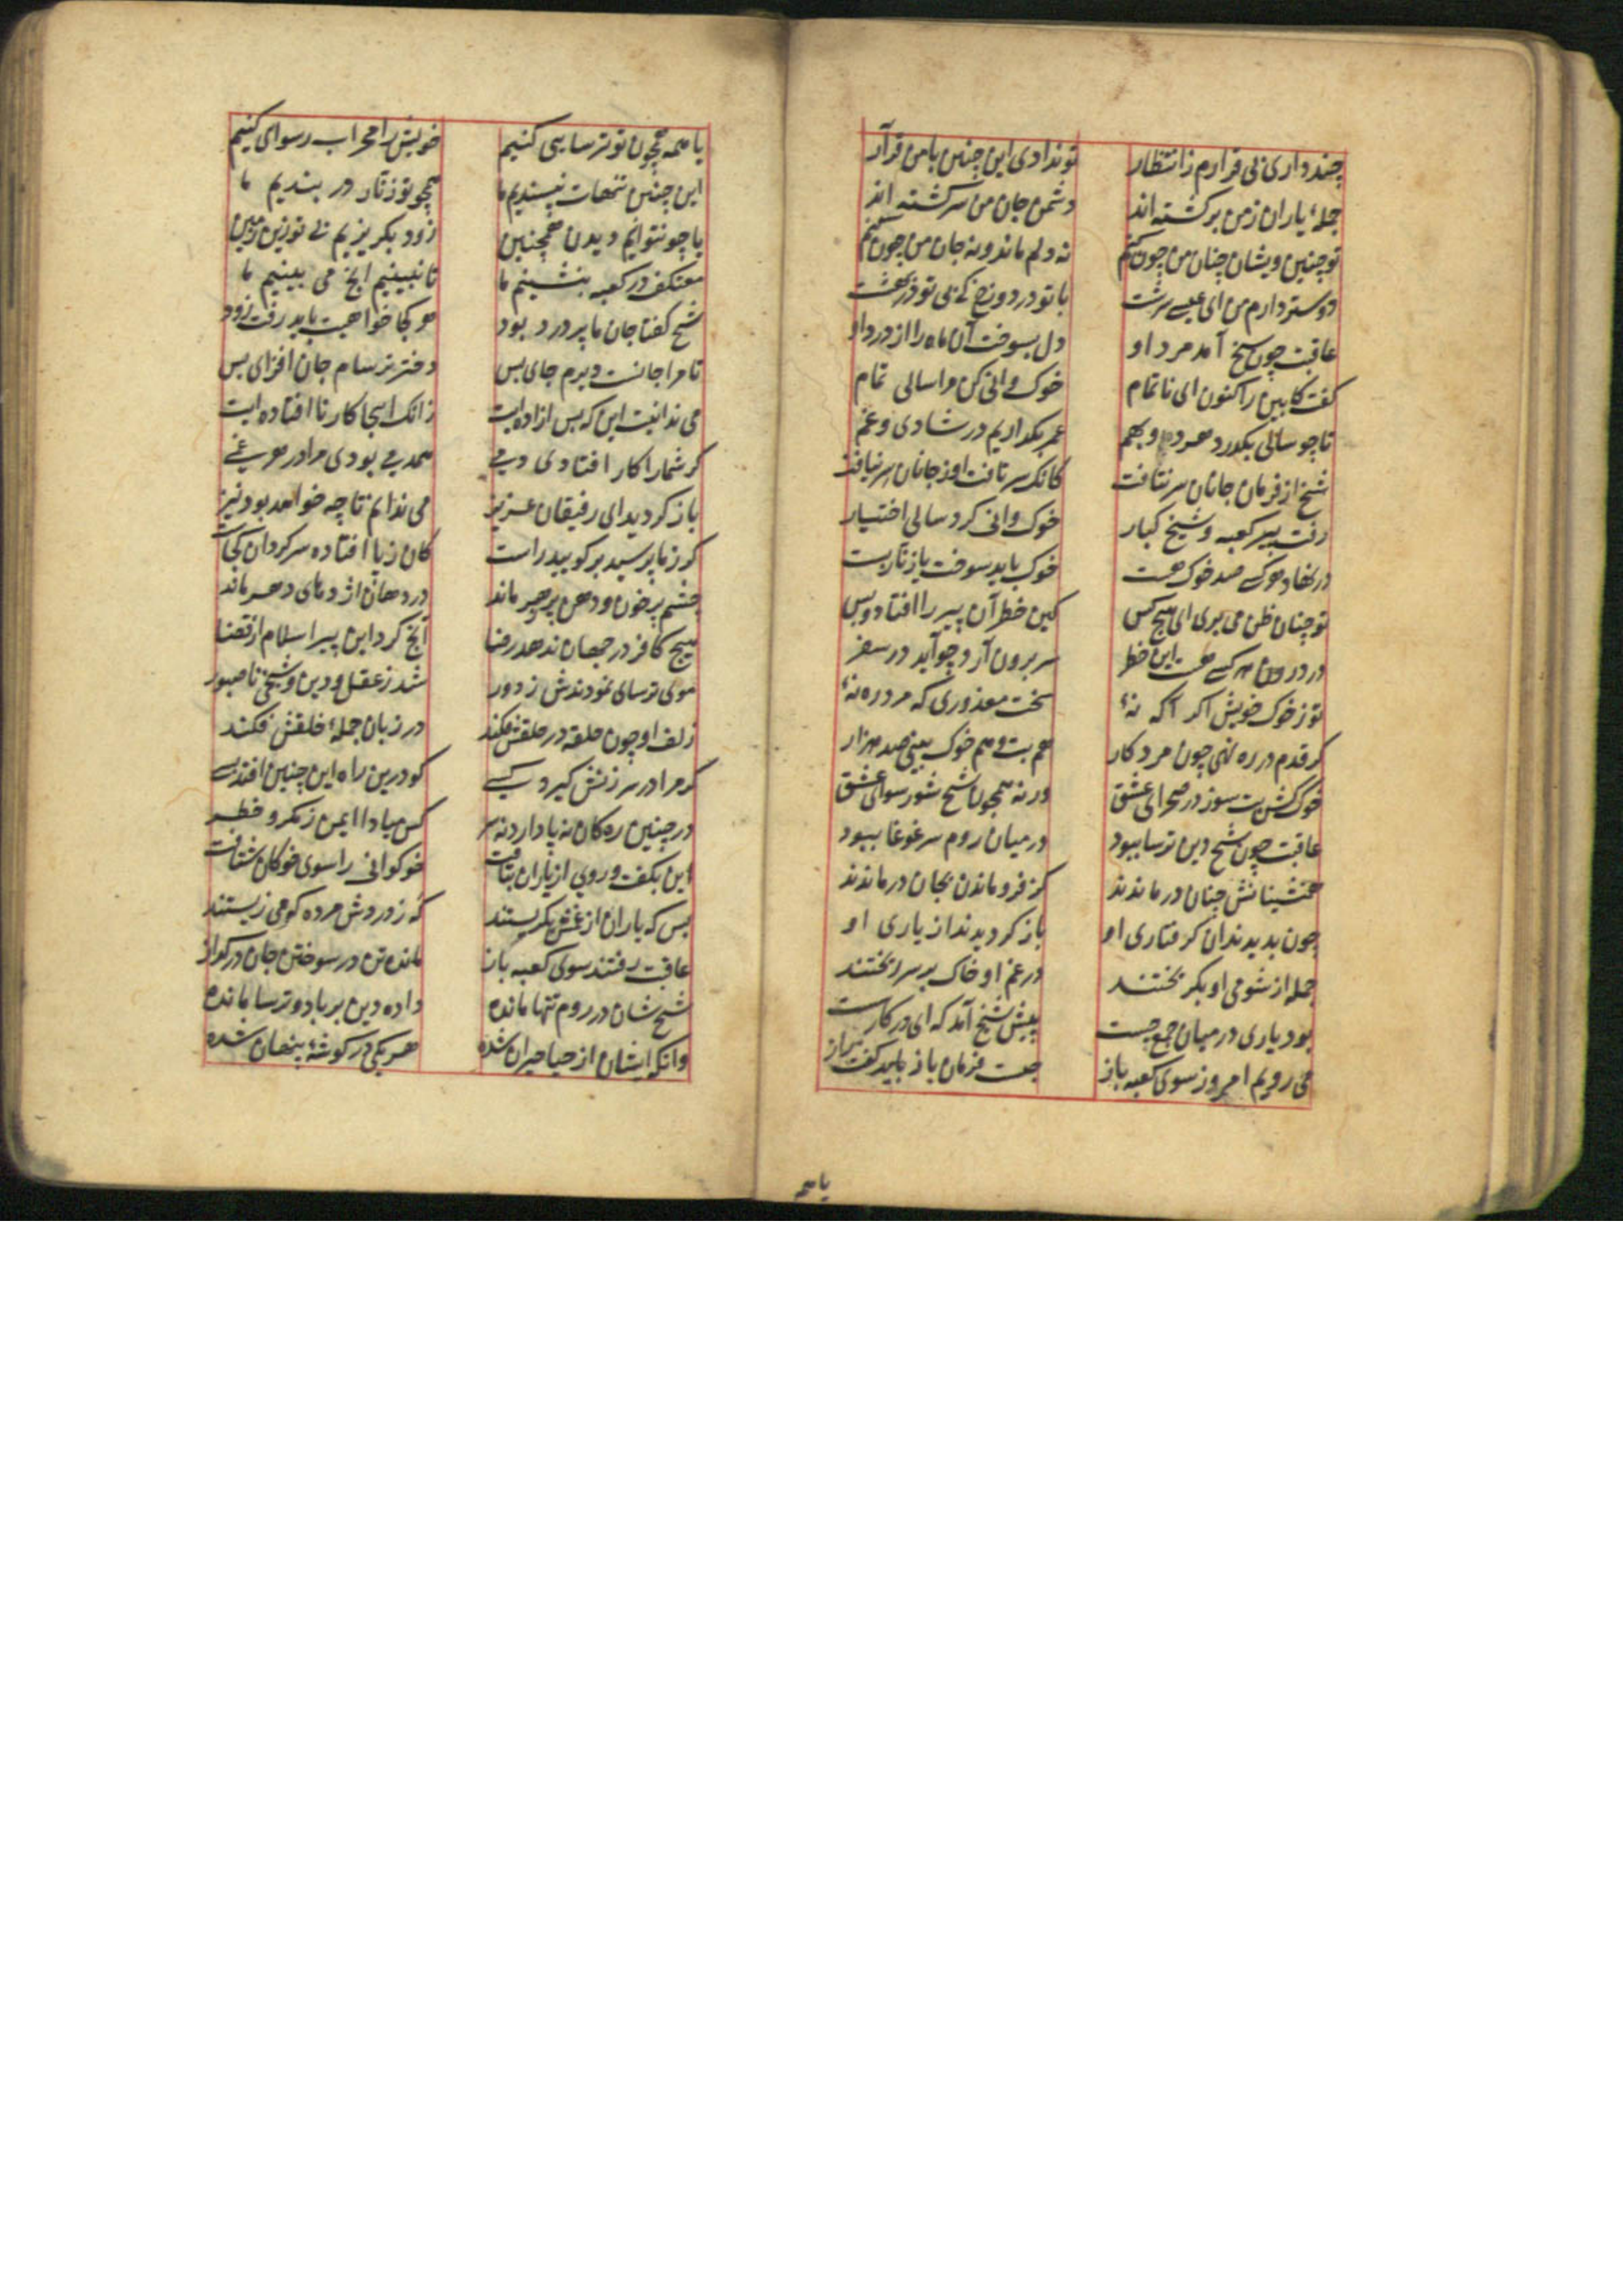 چند داری بی قرارم ز انتظار تو ندادی این چنین با من قرار
جملهٔ یاران ز من برکشته اند دشمن جان من سرکشته اند
تو چنین و ایشان چنان من چون کنم نه دلم ماند و نه جان من چون کنم
دوستر دارم من ای عیسی سرشت با تو در دوزخ که بی تو در بهشت
عاقبت چون شیخ آمد مرد او دل بسوخت آن ماه را از درد او
کفت کابین را کنون ای ناتمام خوک وانی کن مرا سالی تمام
تا چو سالی بکذرد هر دو بهم عمر بکذاریم در شادی و غم
شیخ از فرمان جانان سر نتافت کانک سر تافت او ز جانان سر نیافت
رفت پیر کعبه و شیخ کبار خوک وانی کرد سالی اختیار
در نهاد هر کسی صد خوک هست خوک باید سوخت یا زنار بست
تو چنان ظن می بری ای هیچ کس کین خطر آن پیر را افتاد و بس
در درون هر کسی هست این خطر سر برون آرد چو آید در سفر
تو ز خوک خویش اکر آکه نهٔ سخت معذوری که مرد ره نهٔ
کر قدم در ره نهی چون مرد کار هم بت و هم خوک بینی صد هزار
خوک کش بت سوز در صحرای عشق ورنه همچون شیخ شو رسوای عشق
عاقبت چون شیخ دین ترسا ببود در میان روم سر غوغا ببود
همنشینانش چنان در ماندند کز فرو ماندن بجان در ماندند
چون بدیدند آن کرفتاری او باز کردیدند از یاری او
جمله از شومی او بکریختند در غم او خاک بر سر ریختند
بود یاری در میان جمع چست پیش شیخ آمد که ای در کار سست
می رویم امروز سوی کعبه باز چیست فرمان باز باید کفت راز
با همه
یا همه همچون تو ترسایی کنیم خویش را محراب رسوای کنیم
این چنین تنهات نپسندیم ما همچو تو زنار در بندیم ما
یا چو نتوانیم دیدن همچنین زود بکریزیم بی تو زین زمین
معتکف در کعبه بنشینیم ما تا نبینیم انج می بینیم ما
شیخ کفتا جان ما پر درد بود هر کجا خواهیت باید رفت زود
تا مرا جانست دیرم جای بس دختر ترسام جان افزای بس
می ندانیت این که بس ازاده ایت زانک اینجا کار نا افتاده ایت
کر شما را کار افتادی دمی همدمی بودی مرا در هر غمی
باز کردید ای رفیقان عزیز می ندانم تا چه خواهد بود نیز
کر ز ما پرسید بر کویید راست کان ز پا افتاده سرکردان کجاست
چشم پر خون و دهن پر زهر ماند در دهان اژدهای دهر ماند
هیچ کافر در جهان ندهد رضا انچ کرد این پیر اسلام از قضا
موی ترسای نمودندش ز دور شد ز عقل و دین و شیخی ناصبور
زلف او چون حلقه در حلقش فکند در زبان جملهٔ خلقش فکند
کر مرا در سرزنش کیرد کسی کو درین راه این چنین افتد بسی
در چنین ره کان نه پا دارد نه سر کس مبادا ایمن ز مکر و خطر
این بکفت و روی از یاران بتافت خوکوانی را سوی خوکان شتافت
بس که یاران از غمش بکریستند که ز دردش مرده که می زیستند
عاقبت رفتند سوی کعبه باز مانده تن در سوختن جان در کداز
شیخ شان در روم تنها مانده داده دین بر باد و ترسا مانده
وانکه ایشان از حیا حیران شده هر یکی در کوشهٔ پنهان شده